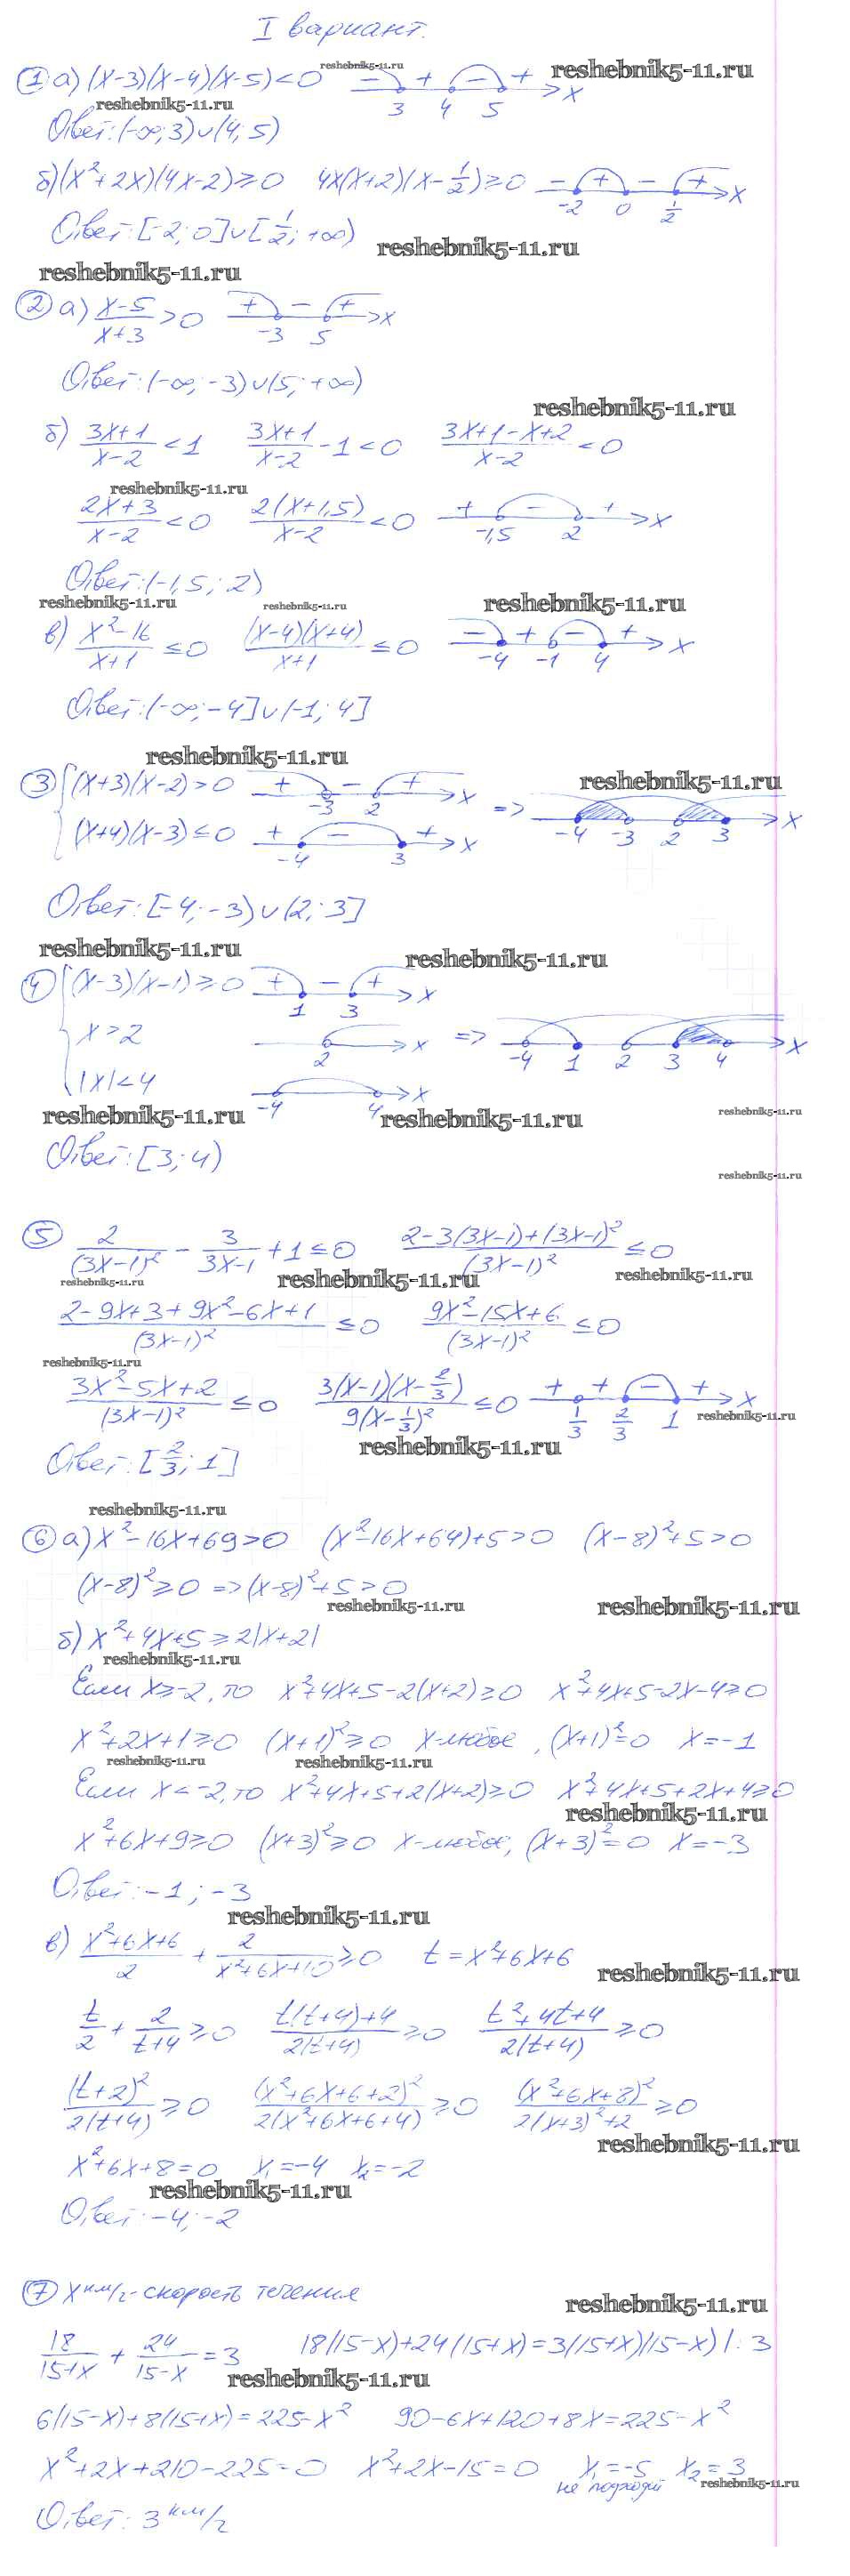 I вариант.
① а) (x-3)(x-4)(x-5)<0 - + - + 3 4 5 x
reshebnik5-11.ru
reshebnik5-11.ru
reshebnik5-11.ru
Ответ: (-∞; 3)∪(4; 5)
б) (x²+2x)(4x-2)≥0 4x(x+2)(x-1/2)≥0 - + - + -2 0 1/2 x
Ответ: [-2; 0]∪[1/2; +∞)
reshebnik5-11.ru
reshebnik5-11.ru
② а) (x-5)/(x+3)>0 + - + -3 5 x
Ответ: (-∞; -3)∪(5; +∞)
reshebnik5-11.ru
б) (3x+1)/(x-2)<1 (3x+1)/(x-2)-1<0 (3x+1-x+2)/(x-2)<0
reshebnik5-11.ru
(2x+3)/(x-2)<0 2(x+1,5)/(x-2)<0 + - + -1,5 2 x
Ответ: (-1,5; 2)
reshebnik5-11.ru
reshebnik5-11.ru
reshebnik5-11.ru
в) (x²-16)/(x+1)≤0 (x-4)(x+4)/(x+1)≤0 - + - + -4 -1 4 x
Ответ: (-∞; -4]∪(-1; 4]
reshebnik5-11.ru
③ { (x+3)(x-2)>0 + - + -3 2 x => -4 -3 2 3 x
reshebnik5-11.ru
(x+4)(x-3)≤0 + - + -4 3 x
Ответ: [-4; -3)∪(2; 3]
reshebnik5-11.ru
reshebnik5-11.ru
④ { (x-3)(x-1)≥0 + - + 1 3 x
x>2 2 x => -4 1 2 3 4 x
|x|<4 -4 4 x
reshebnik5-11.ru
reshebnik5-11.ru
reshebnik5-11.ru
Ответ: [3; 4)
reshebnik5-11.ru
⑤ 2/(3x-1)² - 3/(3x-1) + 1≤0 (2-3(3x-1)+(3x-1)²)/(3x-1)² ≤0
reshebnik5-11.ru
reshebnik5-11.ru
reshebnik5-11.ru
(2-9x+3+9x²-6x+1)/(3x-1)² ≤0 (9x²-15x+6)/(3x-1)² ≤0
reshebnik5-11.ru
(3x²-5x+2)/(3x-1)² ≤0 3(x-1)(x-2/3)/9(x-1/3)² ≤0 + + - + 1/3 2/3 1 x
reshebnik5-11.ru
reshebnik5-11.ru
Ответ: [2/3; 1]
reshebnik5-11.ru
⑥ а) x²-16x+69>0 (x²-16x+64)+5>0 (x-8)²+5>0
(x-8)²≥0 => (x-8)²+5>0
reshebnik5-11.ru
reshebnik5-11.ru
б) x²+4x+5≥2|x+2|
reshebnik5-11.ru
Если x≥-2, то x²+4x+5-2(x+2)≥0 x²+4x+5-2x-4≥0
x²+2x+1≥0 (x+1)²≥0 x-любое, (x+1)²=0 x=-1
reshebnik5-11.ru
reshebnik5-11.ru
Если x<-2, то x²+4x+5+2(x+2)≥0 x²+4x+5+2x+4≥0
reshebnik5-11.ru
x²+6x+9≥0 (x+3)²≥0 x-любое, (x+3)²=0 x=-3
Ответ: -1; -3
reshebnik5-11.ru
в) (x²+6x+6)/2 + 2/(x²+6x+10)≥0 t=x²+6x+6
reshebnik5-11.ru
t/2 + 2/(t+4)≥0 (t(t+4)+4)/2(t+4)≥0 (t²+4t+4)/2(t+4)≥0
(t+2)²/2(t+4)≥0 (x²+6x+6+2)²/2(x²+6x+6+4)≥0 (x²+6x+8)²/2(x+3)²+2≥0
reshebnik5-11.ru
x²+6x+8=0 x₁=-4 x₂=-2
reshebnik5-11.ru
Ответ: -4; -2
⑦ x км/ч - скорость течения
reshebnik5-11.ru
18/(15+x) + 24/(15-x) = 3 18(15-x)+24(15+x)=3(15+x)(15-x) |:3
reshebnik5-11.ru
6(15-x)+8(15+x)=225-x² 90-6x+120+8x=225-x²
x²+2x+210-225=0 x²+2x-15=0 x₁=-5 x₂=3
не подходит
reshebnik5-11.ru
Ответ: 3 км/ч